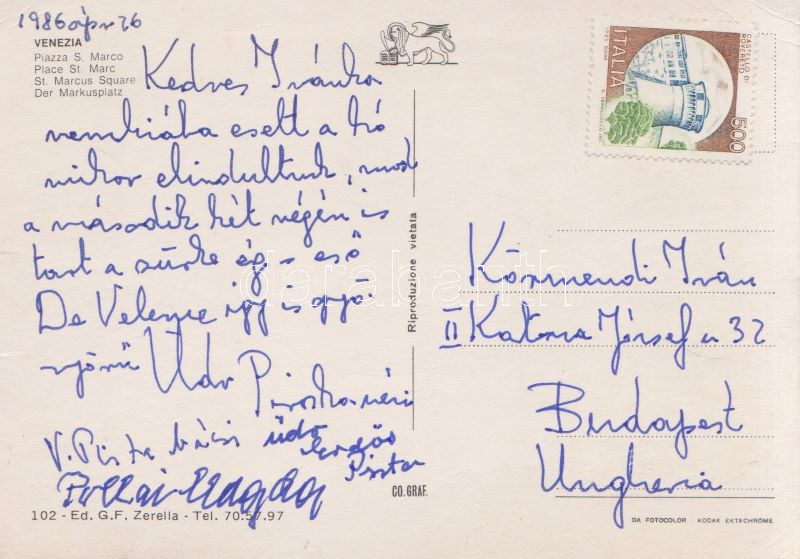 1986 ápr 26
VENEZIA
Piazza S. Marco
Place St. Marc
St. Marcus Square
Der Markusplatz
Kedves Ivánka
nemhiába esett a hó
mikor elindultunk, most
a második hét végén is
tart a szürke ég - eső
De Velence így is gyö-
nyörű Üdv Piroska néni
V. Pista bácsi üdv
Pista
102 - Ed. G.F. Zerella - Tel. 70.57.97
Riproduzione vietata
CO. GRAF.
CASTELLO DI
ROVERETO
ITALIA
500
Körmendi Iván
II Katona József u 32
Budapest
Ungheria
DA FOTOCOLOR - KODAK EKTACHROME
darabanth